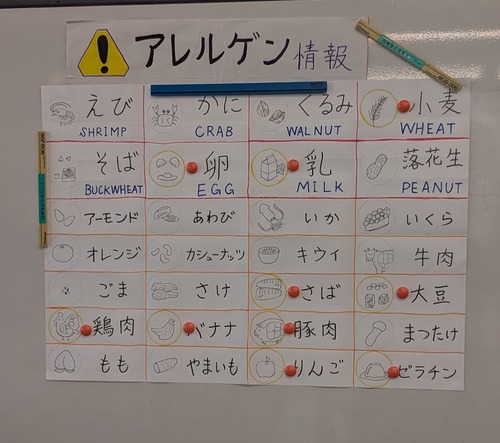 アレルゲン情報
えび かに くるみ 小麦
SHRIMP CRAB WALNUT WHEAT
そば 卵 乳 落花生
BUCKWHEAT EGG MILK PEANUT
アーモンド あわび いか いくら
オレンジ カシューナッツ キウイ 牛肉
ごま さけ さば 大豆
鶏肉 バナナ 豚肉 まつたけ
もも やまいも りんご ゼラチン